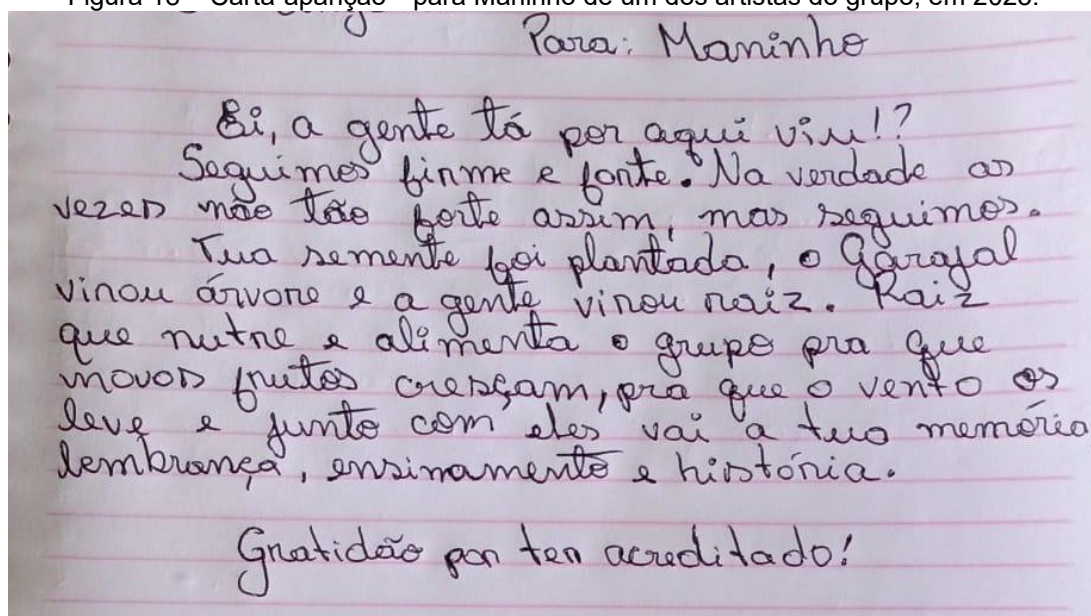 Para: Maninho
Ei, a gente tá por aqui viu!?
Seguimos firme e forte. Na verdade as
vezes não tão forte assim, mas seguimos.
Tua semente foi plantada, o Garajal
virou árvore e a gente virou raiz. Raiz
que nutre e alimenta o grupo pra que
novos frutos cresçam, pra que o vento os
leve e junto com eles vai a tua memória
lembrança, ensinamento e história.
Gratidão por ter acreditado!